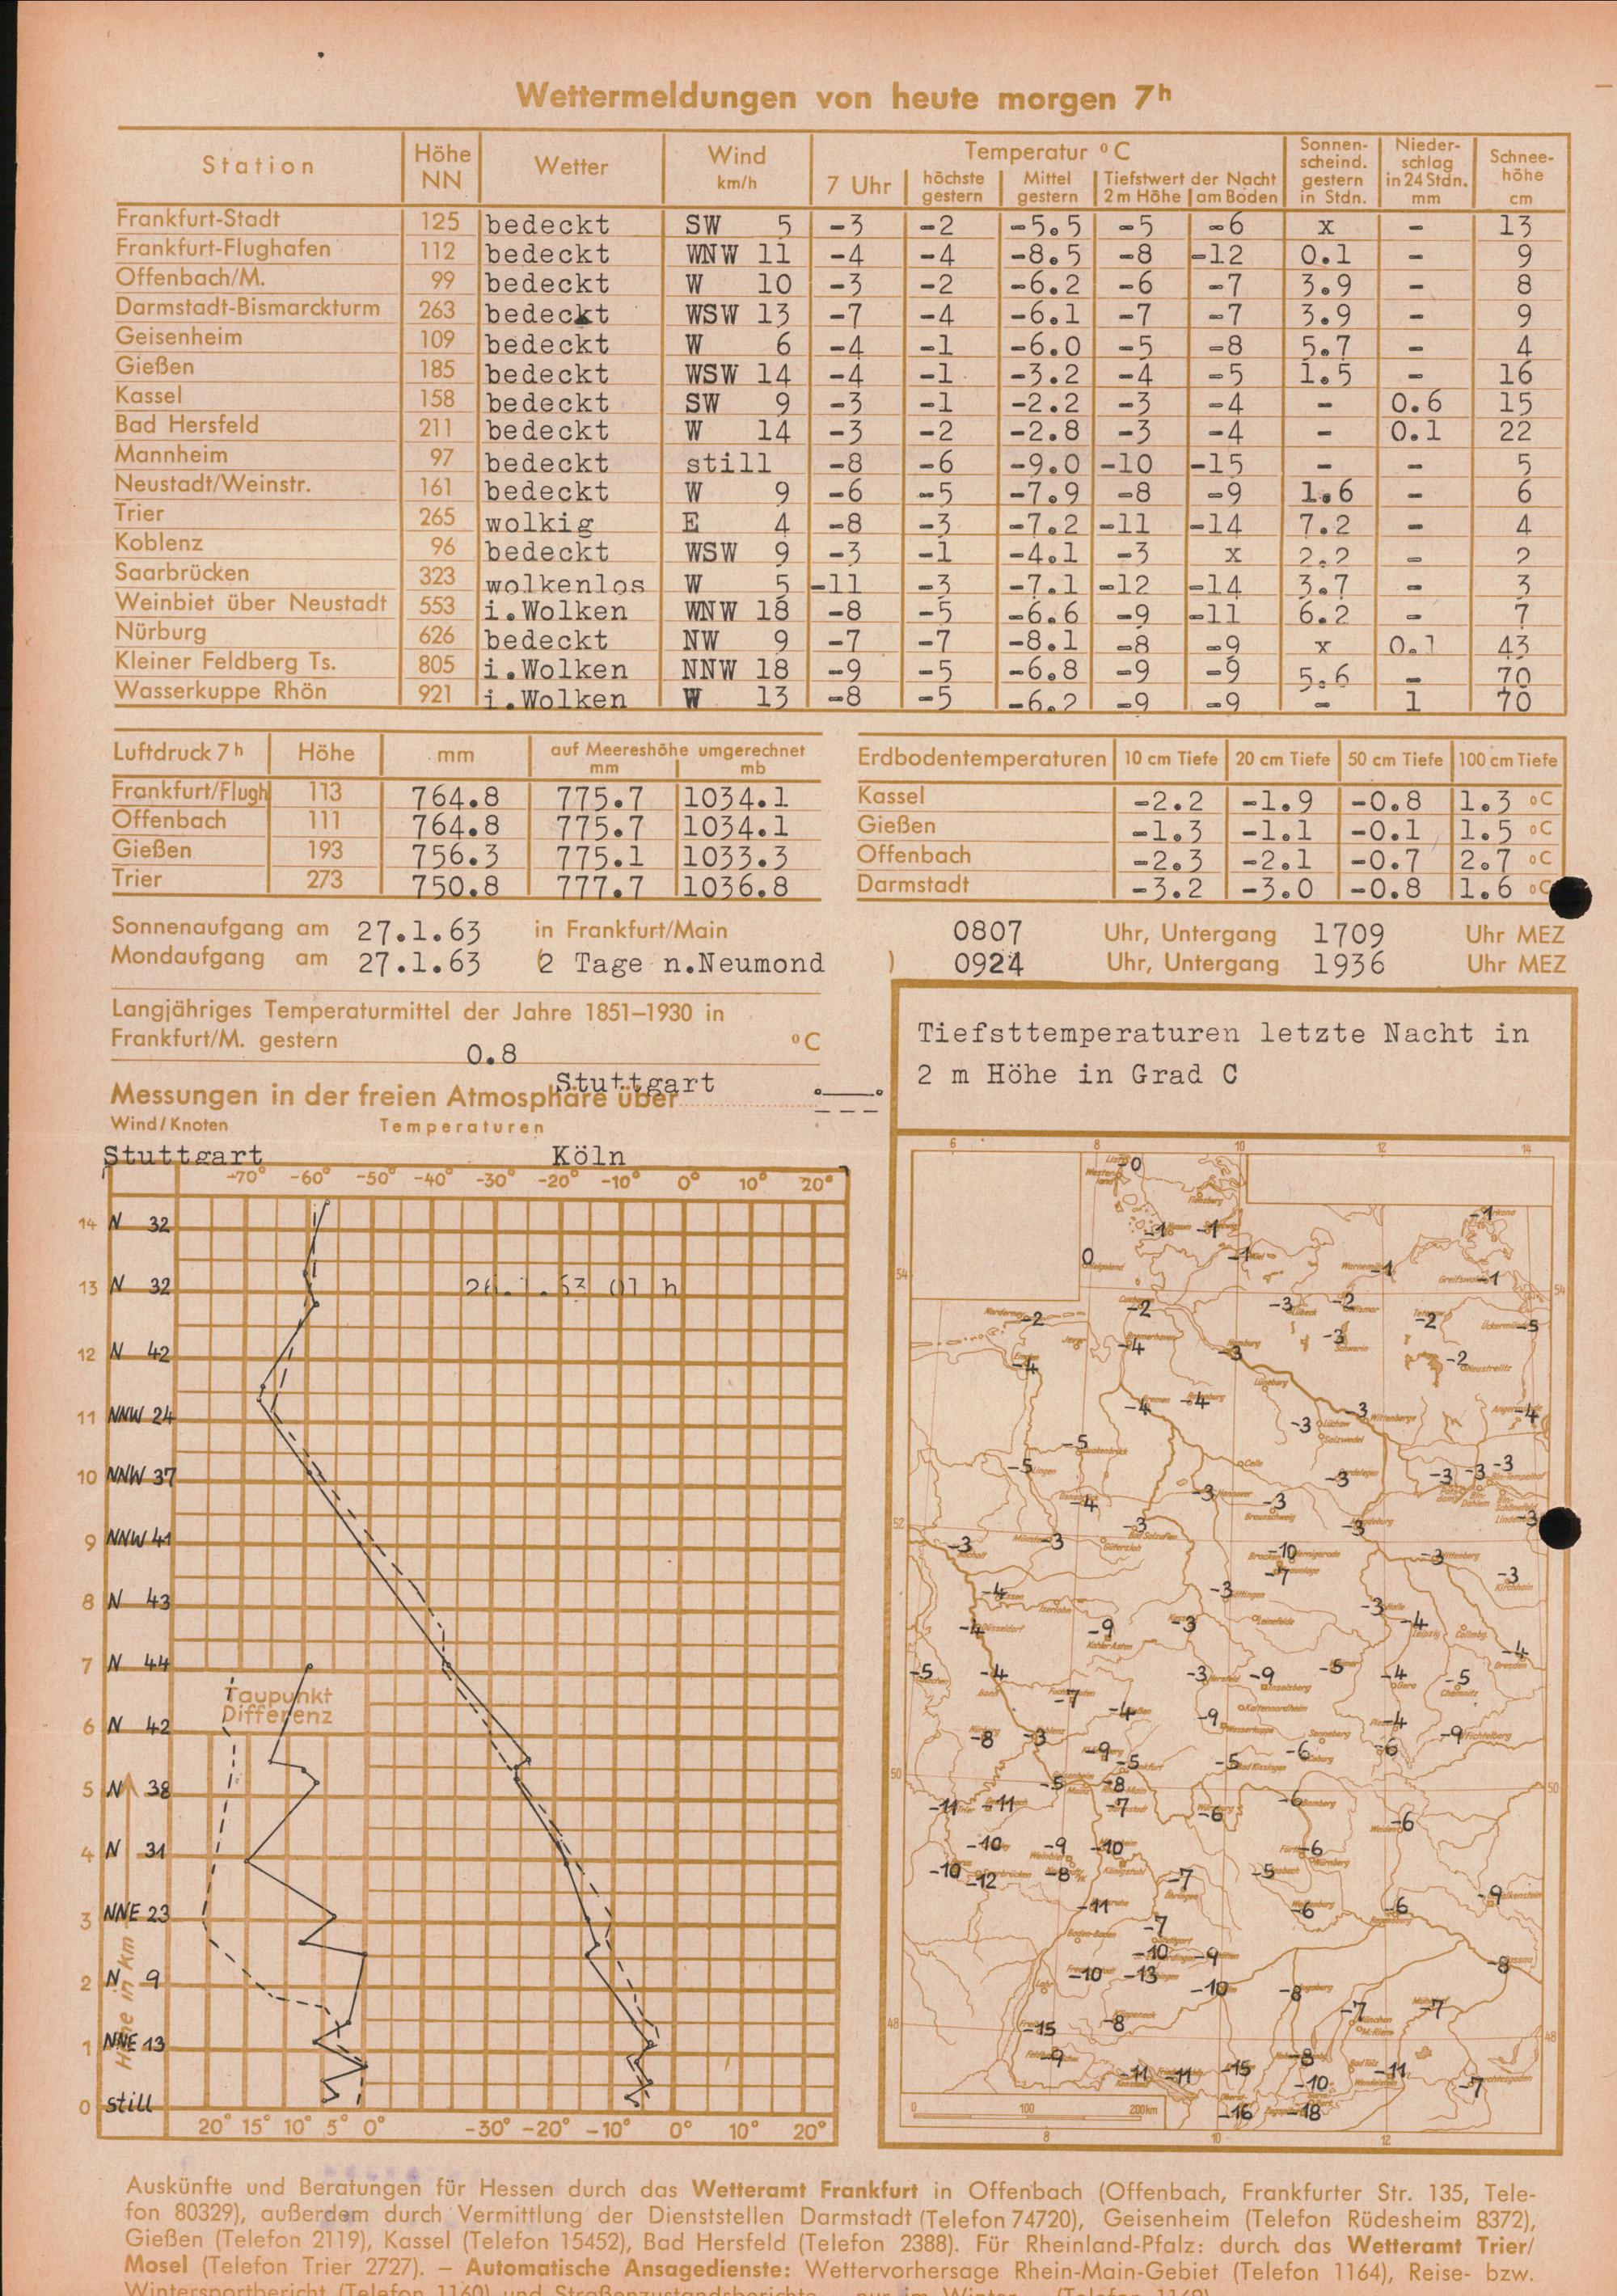 Wettermeldungen von heute morgen 7h
Station Höhe NN Wetter Wind km/h Temperatur °C Sonnenscheind. gestern in Stdn. Niederschlag in 24 Stdn. mm Schneehöhe cm
7 Uhr höchste gestern Mittel gestern Tiefstwert der Nacht 2 m Höhe am Boden
Frankfurt-Stadt 125 bedeckt SW 5 -3 -2 -5.5 -5 -6 x - 13
Frankfurt-Flughafen 112 bedeckt WNW 11 -4 -4 -8.5 -8 -12 0.1 - 9
Offenbach/M. 99 bedeckt W 10 -3 -2 -6.2 -6 -7 3.9 - 8
Darmstadt-Bismarckturm 263 bedeckt WSW 13 -7 -4 -6.1 -7 -7 3.9 - 9
Geisenheim 109 bedeckt W 6 -4 -1 -6.0 -5 -8 5.7 - 4
Gießen 185 bedeckt WSW 14 -4 -1 -3.2 -4 -5 1.5 - 16
Kassel 158 bedeckt SW 9 -3 -1 -2.2 -3 -4 - 0.6 15
Bad Hersfeld 211 bedeckt W 14 -3 -2 -2.8 -3 -4 - 0.1 22
Mannheim 97 bedeckt still -8 -6 -9.0 -10 -15 - - 5
Neustadt/Weinstr. 161 bedeckt W 9 -6 -5 -7.9 -8 -9 1.6 - 6
Trier 265 wolkig E 4 -8 -3 -7.2 -11 -14 7.2 - 4
Koblenz 96 bedeckt WSW 9 -3 -1 -4.1 -3 x 2.2 - 2
Saarbrücken 323 wolkenlos W 5 -11 -3 -7.1 -12 -14 3.7 - 3
Weinbiet über Neustadt 553 i.Wolken WNW 18 -8 -5 -6.6 -9 -11 6.2 - 7
Nürburg 626 bedeckt NW 9 -7 -7 -8.1 -8 -9 x 0.1 43
Kleiner Feldberg Ts. 805 i.Wolken NNW 18 -9 -5 -6.8 -9 -9 5.6 - 70
Wasserkuppe Rhön 921 i.Wolken W 13 -8 -5 -6.2 -9 -9 - 1 70
Luftdruck 7h Höhe mm auf Meereshöhe umgerechnet mm mb
Frankfurt/Flugh 113 764.8 775.7 1034.1
Offenbach 111 764.8 775.7 1034.1
Gießen 193 756.3 775.1 1033.3
Trier 273 750.8 777.7 1036.8
Erdbodentemperaturen 10 cm Tiefe 20 cm Tiefe 50 cm Tiefe 100 cm Tiefe
Kassel -2.2 -1.9 -0.8 1.3 °C
Gießen -1.3 -1.1 -0.1 1.5 °C
Offenbach -2.3 -2.1 -0.7 2.7 °C
Darmstadt -3.2 -3.0 -0.8 1.6 °C
Sonnenaufgang am 27.1.63 in Frankfurt/Main 0807 Uhr, Untergang 1709 Uhr MEZ
Mondaufgang am 27.1.63 (2 Tage n.Neumond ) 0924 Uhr, Untergang 1936 Uhr MEZ
Langjähriges Temperaturmittel der Jahre 1851–1930 in
Frankfurt/M. gestern 0.8 °C
Messungen in der freien Atmosphäre über Stuttgart
Wind/Knoten Temperaturen
Stuttgart Köln
-70° -60° -50° -40° -30° -20° -10° 0° 10° 20°
14 N 32
13 N 32
26.1.63 01 h
12 N 42
11 NNW 24
10 NNW 37
9 NNW 41
8 N 43
7 N 44
Taupunkt
Differenz
6 N 42
5 N 38
4 N 31
3 NNE 23
2 N 9
1 NNE 13
0 still
Höhe in km
20° 15° 10° 5° 0° -30° -20° -10° 0° 10° 20°
Tiefsttemperaturen letzte Nacht in
2 m Höhe in Grad C
6 8 10 12 14
0
-1 -1 -1
0 -1 -1 -1
54 54
-2 -2 -3 -2 -2 -5
-4 -4 -3 -3 -2
-4 -4 -3 -3 -4
-5 -5 -3 -3 -3 -3
-4 -3 -3
52 -3 -3 -3 -3 -3
-10 -3
-7 -3
-4 -3 -3 -4
-4 -9 -3 -4
-5 -4 -3 -9 -5 -4 -5
-7 -4 -9 -4 -9
-8 -3 -9 -5 -5 -6 -6
50 -5 -8 50
-11 -11 -7 -6 -6 -6
-10 -9 -10 -6
-10 -12 -8 -7 -5
-11 -6 -6 -9
-7
-10 -9 -8
-10 -13 -10 -8
48 -15 -8 -7 -7 48
-9 -11 -11 -15 -8 -11
-10 -7
-16 -18
0 100 200km
8 10 12
Auskünfte und Beratungen für Hessen durch das Wetteramt Frankfurt in Offenbach (Offenbach, Frankfurter Str. 135, Tele-
fon 80329), außerdem durch Vermittlung der Dienststellen Darmstadt (Telefon 74720), Geisenheim (Telefon Rüdesheim 8372),
Gießen (Telefon 2119), Kassel (Telefon 15452), Bad Hersfeld (Telefon 2388). Für Rheinland-Pfalz: durch das Wetteramt Trier/
Mosel (Telefon Trier 2727). – Automatische Ansagedienste: Wettervorhersage Rhein-Main-Gebiet (Telefon 1164), Reise- bzw.
Wintersportbericht (Telefon 1160) und Straßenzustandsberichte – nur im Winter – (Telefon 1169)